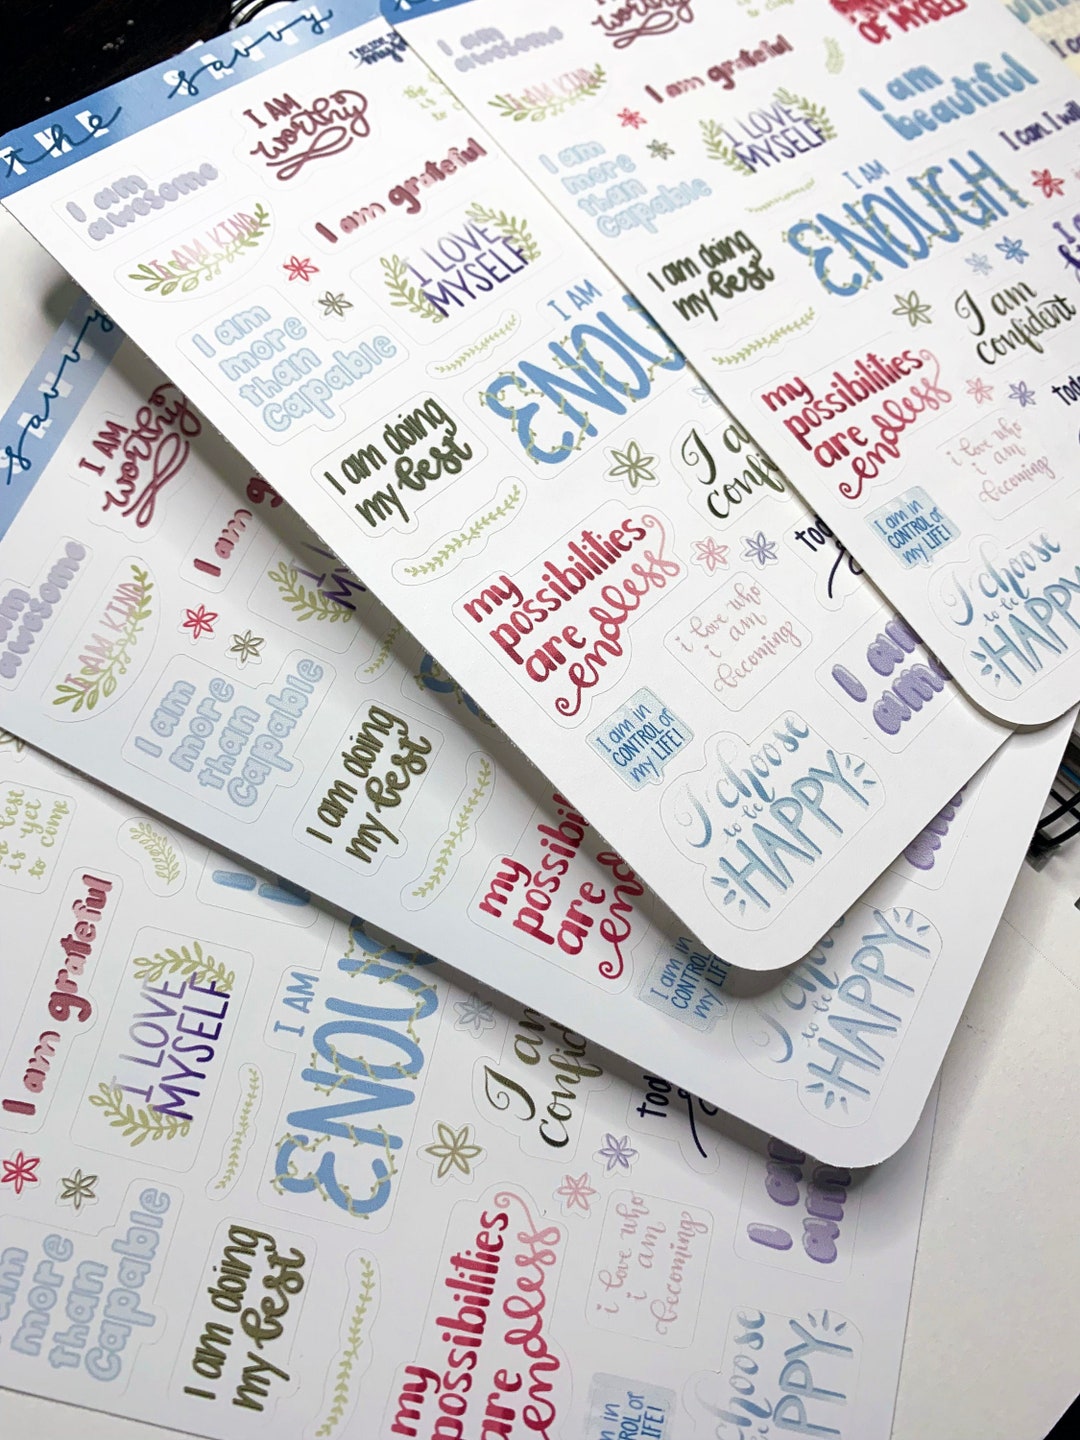 the savvy
I AM
worthy
I am
awesome
I am grateful
I AM KIND
I LOVE
MYSELF
I am
more
than
capable
I AM
ENOU
I am doing
my best
I a
confi
my
possibilities
are
endless
tod
i love who
i am
becoming
I am in
CONTROL of
my LIFE!
I am
ama
I choose
to be
HAPPY
I am
awesome
worthy
OF MYSELF
I AM KIND
I am grateful
I am
beautiful
I LOVE
MYSELF
I can I will
I am
more
than
capable
I AM
ENOUGH
I am doing
my best
I am
confident
my
possibilities
are
endless
toda
i love who
i am
becoming
I am in
CONTROL of
my LIFE!
I choose
to be
HAPPY
savvy
I AM
worthy
I am
awesome
I am gr
I AM KIND
I
MY
I am
more
than
capable
I am doing
my best
my
possibili
are
en
I am in
CONTROL
my LIFE
to be
HAPPY
best
is yet
to come
I am grateful
I LOVE
MYSELF
I AM
ENOU
I am
confid
tod
I am
am
am
more
than
capable
I am doing
my best
my
possibilities
are
endless
i love who
i am
becoming
choose
PPY